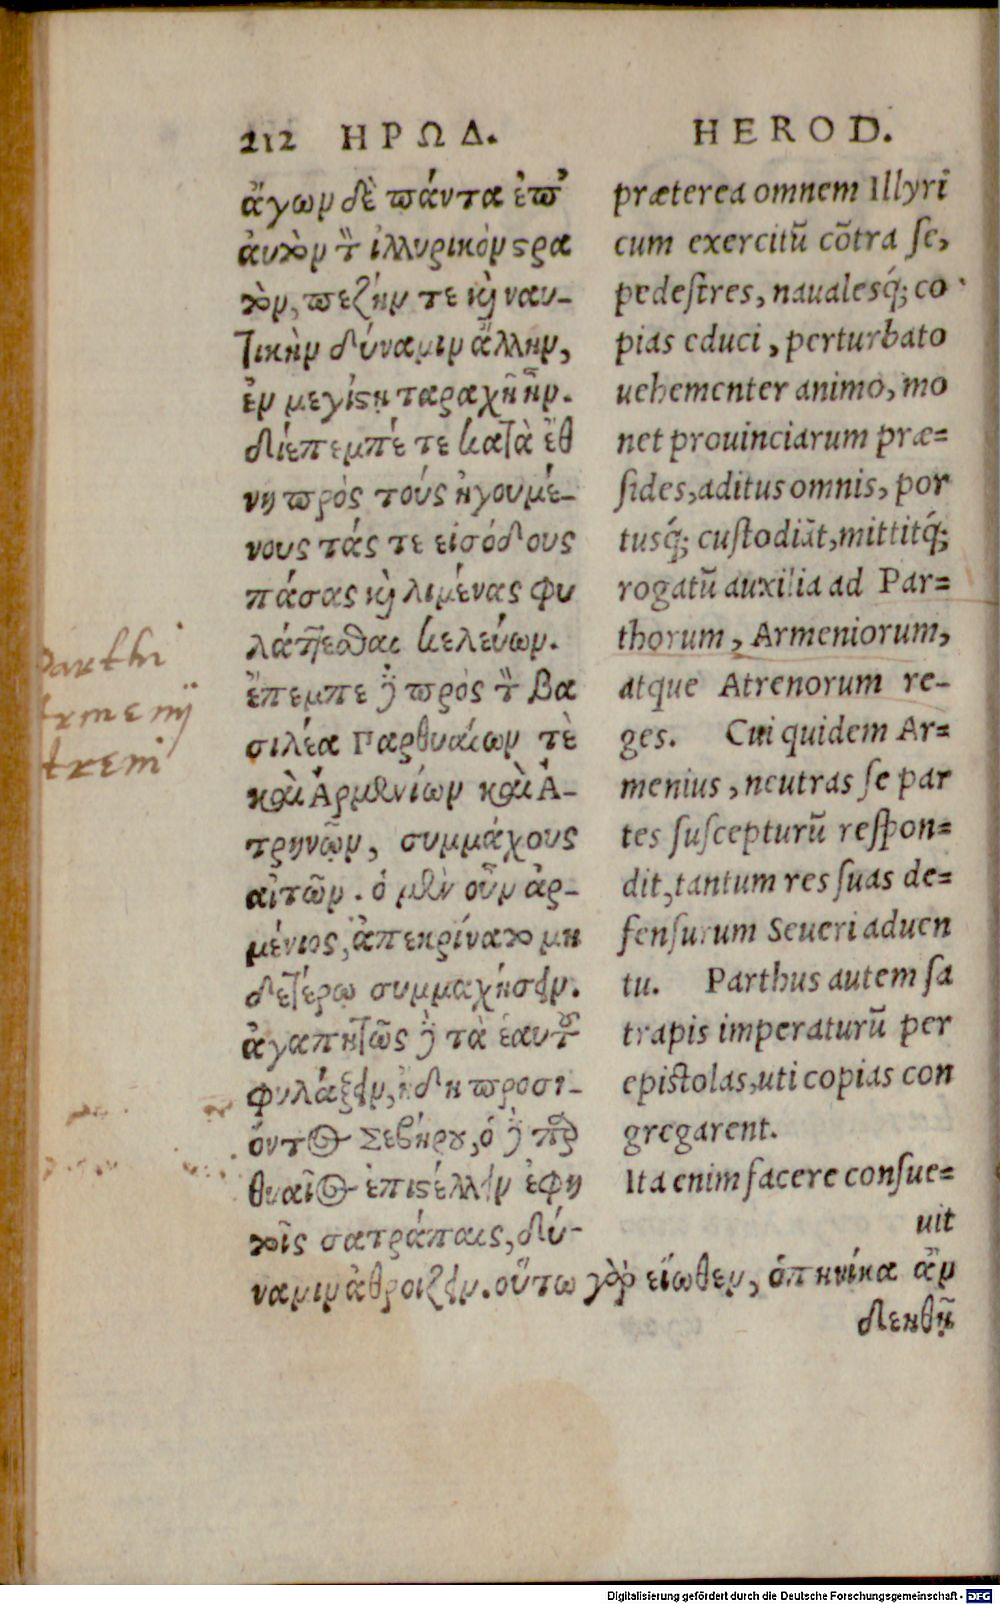 212 ΗΡΩΔ.
ἄγων δὲ πάντα ἐπ᾽
ἀυτὸν τ̀ ἰλλυρικὸν στρα
τὸν, πεζήν τε κ̀ ναυ-
τικὴν δύναμιν ἄλλην,
ἐν μεγίστῃ ταραχῇ ἦν.
διέπεμπέ τε κατὰ ἔθ
νη πρὸς τούς ἡγουμέ-
νους τάς τε εἰσόδους
πάσας κ̀ λιμένας φυ
λάττεσθαι κελεύων.
ἔπεμπε δ̀ πρὸς τ̀ βα
σιλέα Παρθυαίων τὲ
καὶ Ἀρμενίων καὶ Ἀ-
τρηνῶν, συμμάχους
αἰτῶν. ὁ μὲν οὖν ἀρ-
μένιος, ἀπεκρίνατο μη
δετέρῳ συμμαχήσειν.
ἀγαπητῶς δ̀ τὰ ἑαυτ͂
φυλάξειν, ἤδη προσι-
όντος Σεβήρου, ὁ δ̀ παρ
θυαῖος ἐπιστέλλειν ἐφη
τοῖς σατράπαις, δύ-
ναμιν ἀθροιζειν. οὕτω γὰρ εἴωθεν, ὁπηνίκα ἂν
δεηθῇ
HEROD.
præterea omnem Illyri
cum exercitũ cõtra se,
pedestres, naualesq́; co
pias educi, perturbato
uehementer animo, mo
net prouinciarum præ=
sides, aditus omnis, por
tusq́; custodiãt, mittitq́;
rogatũ auxilia ad Par=
thorum, Armeniorum,
atque Atrenorum re-
ges. Cui quidem Ar=
menius, neutras se par
tes suscepturũ respon=
dit, tantum res suas de=
fensurum Seueri aduen
tu. Parthus autem sa
trapis imperaturũ per
epistolas, uti copias con
gregarent.
Ita enim facere consue=
uit
Parthi
Armenij
Atreni
Digitalisierung gefördert durch die Deutsche Forschungsgemeinschaft - DFG